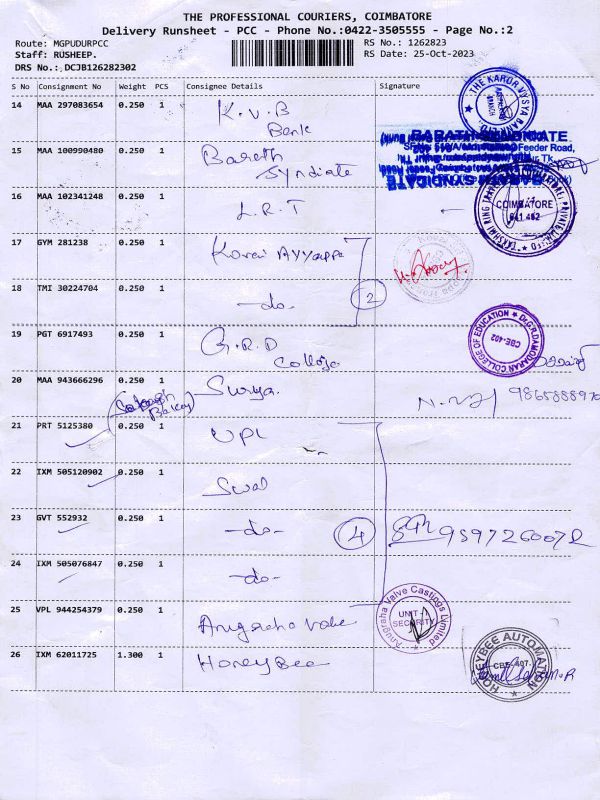 THE PROFESSIONAL COURIERS, COIMBATORE
Delivery Runsheet - PCC - Phone No.:0422-3505555 - Page No.:2
Route: MGPUDURPCC RS No.: 1262823
Staff: RUSHEEP. RS Date: 25-Oct-2023
DRS No.: DCJB126282302
S No Consignment No Weight PCS Consignee Details Signature
14 MAA 297083654 0.250 1 K.V.B
Bank
THE KARUR VYSYA BANK
15 MAA 100990480 0.250 1 Barath
Syndiate
BARATH SYNDICATE
Feeder Road,
16 MAA 102341248 0.250 1 L.R.T
COIMBATORE
641 402
17 GYM 281238 0.250 1 Kovai Ayyappa
18 TMI 30224704 0.250 1 -do- 2
19 PGT 6917493 0.250 1 G.R.D
College
Dr.G.R.DAMODARAN COLLEGE OF EDUCATION
CBE-402
20 MAA 943666296 0.250 1 Surya.
21 PRT 5125380 0.250 1 UPL
22 IXM 505120902 0.250 1 Swal
23 GVT 552932 0.250 1 -do- 4
24 IXM 505076847 0.250 1 -do-
25 VPL 944254379 0.250 1 Anugraha Valve
Anugraha Valve Castings Limited
UNIT - I
SECURITY
26 IXM 62011725 1.300 1 HoneyBee
HONEYBEE AUTOMATION
CBE-407.